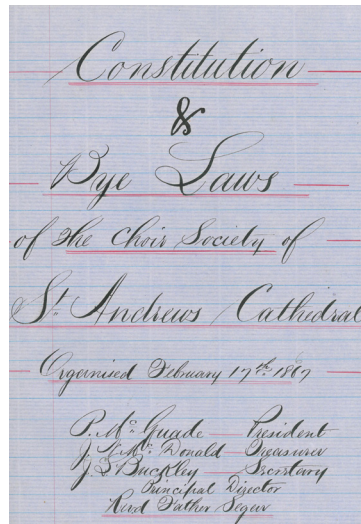 Constitution
&
Bye Laws
of the Choir Society of
St. Andrews Cathedral
Organised February 17th. 1867
P. Mc. Quade — President
J. Mc. Donald — Treasurer
J. S. Buckley — Secretary
Principal Director
Revd Father Segur